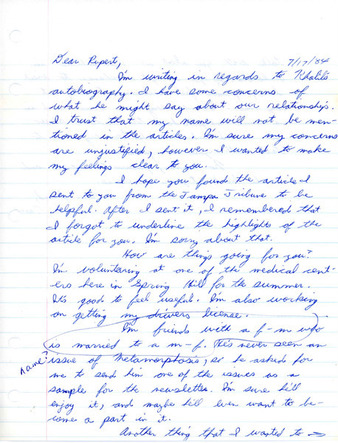 Dear Rupert, 7/17/84
I'm writing in regards to Khalils
autobiography. I have some concerns of
what he might say about our relationship.
I trust that my name will not be men-
tioned in the articles. I'm sure my concerns
are unjustified, however I wanted to make
my feelings clear to you.
I hope you found the article I
sent to you from the Tampa Tribune to be
helpful. After I sent it, I remembered that
I forgot to underline the highlights of the
article for you. I'm sorry about that.
How are things going for you?
I'm volunteering at one of the medical cent-
ers here in Spring Hill for the summer.
Its good to feel useful. I'm also working
on getting my drivers license.
I'm friends with a f-m who
is married to a m-f. He's never seen an
name? issue of Metamorphosis, so he asked for
me to send him one of the issues as a
sample for the newsletter. I'm sure he'll
enjoy it, and maybe he'll ever want to be-
come a part in it.
Another thing that I wanted to